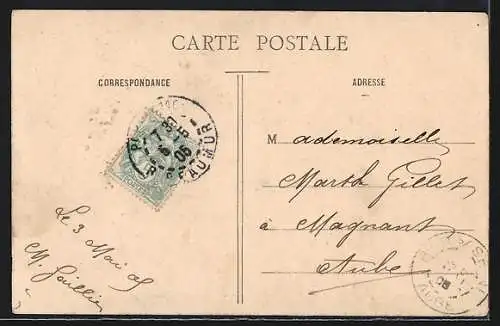 CARTE POSTALE
CORRESPONDANCE
ADRESSE
Mademoiselle
Marth Gillet
à Magnant
Aube
Le 3 Mai 05
M.
RÉAUMUR
AUBE